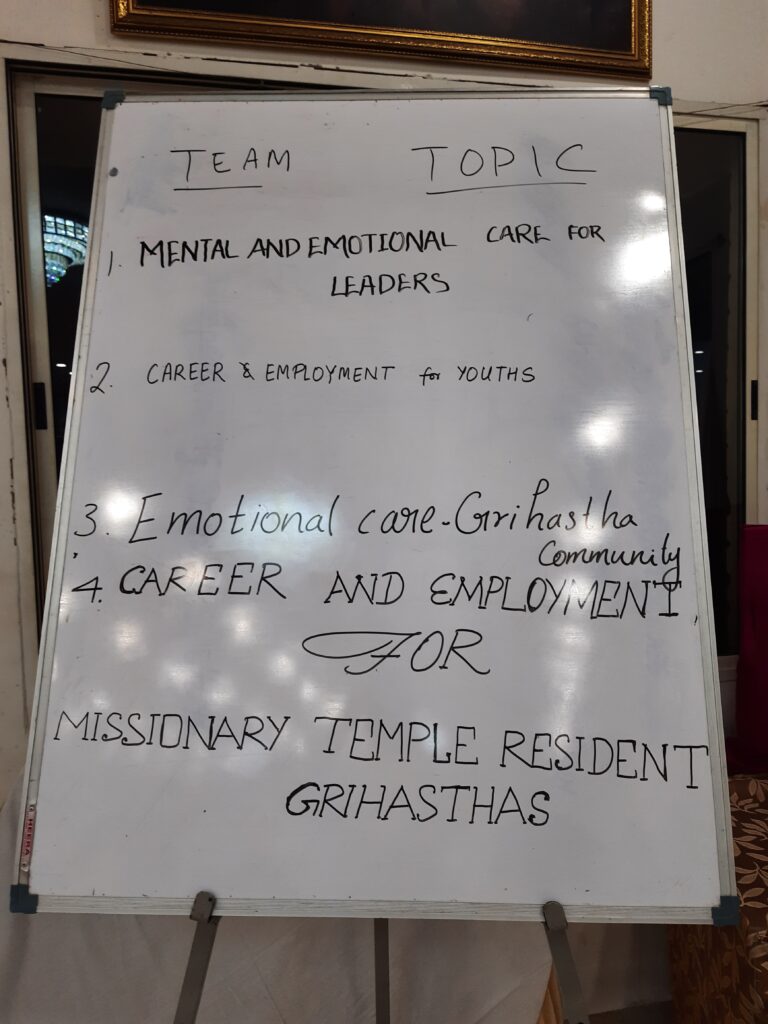 TEAM TOPIC
1. MENTAL AND EMOTIONAL CARE FOR
LEADERS
2. CAREER & EMPLOYMENT for YOUTHS
3. Emotional care-Grihastha
Community
4. CAREER AND EMPLOYMENT
FOR
MISSIONARY TEMPLE RESIDENT
GRIHASTHAS
HEERA